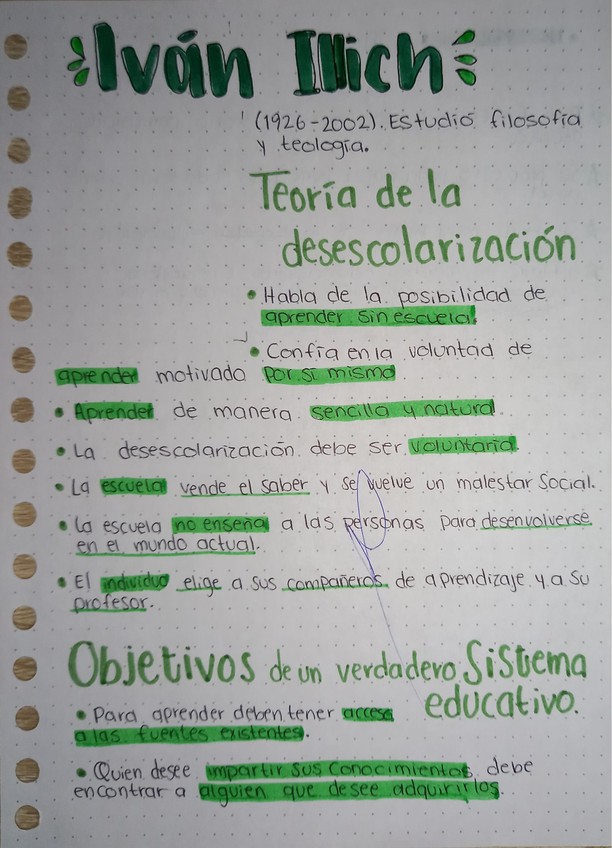 Iván Illich
(1926-2002). Estudió filosofía
y teología.
Teoría de la
desescolarización
• Habla de la posibilidad de
aprender sin escuela.
• Confía en la voluntad de
aprender motivado por sí mismo
• Aprender de manera sencilla y natural.
• La desescolarización debe ser voluntaria.
• La escuela vende el saber y se vuelve un malestar social.
• La escuela no enseña a las personas para desenvolverse
en el mundo actual.
• El individuo elige a sus compañeros de aprendizaje y a su
profesor.
Objetivos de un verdadero Sistema
educativo.
• Para aprender deben tener acceso
a las fuentes existentes.
• Quien desee impartir sus conocimientos, debe
encontrar a alguien que desee adquirirlos.